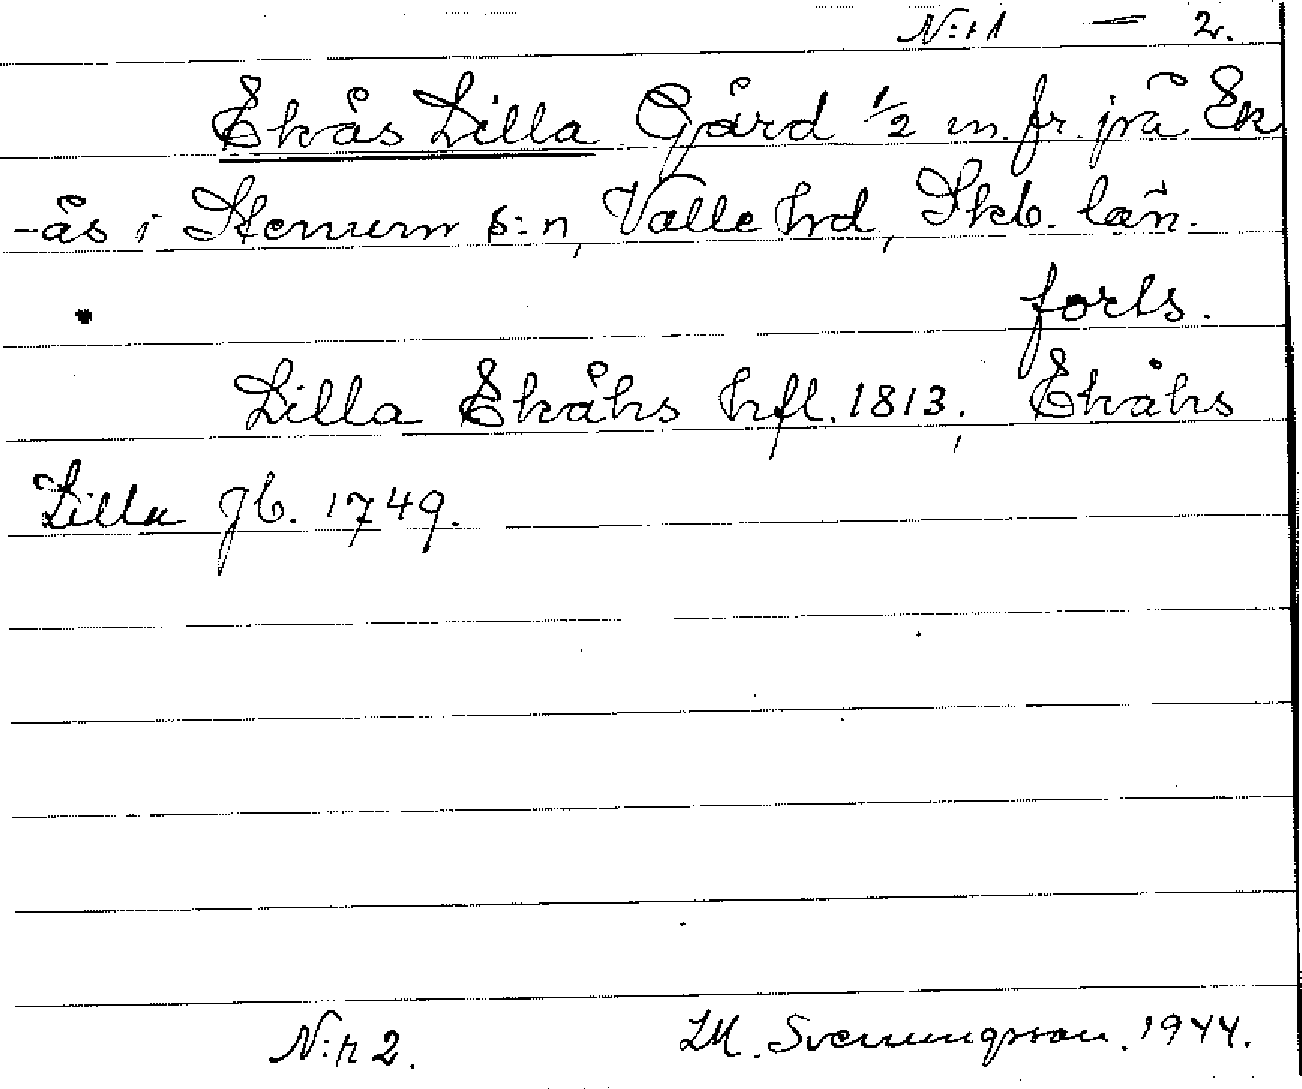 N:r 1 — 2.
Ekås Lilla Gård 1/2 m. fr. jrä Ek
-ås i Stenum s:n, Valle hrd, Skb. län.
forts.
Lilla Ekåhs hfl. 1813, Ekåhs
Lilla Jb. 1749.
N:r 2. LM. Svenungsson. 1944.